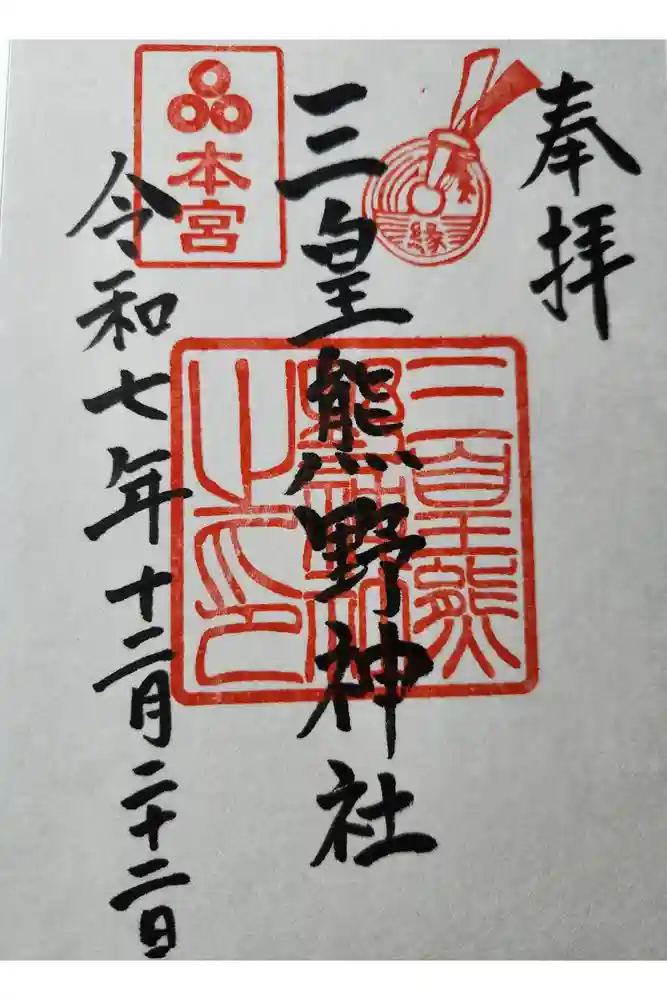 奉拝
縁
三皇熊野神社
三皇熊
野神社
之印
本宮
令和七年十二月二十二日